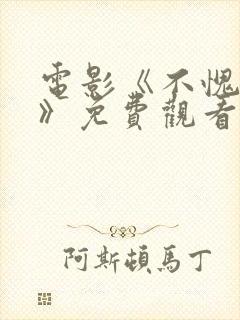 電影《不愧
》免費觀看
阿斯頓馬丁